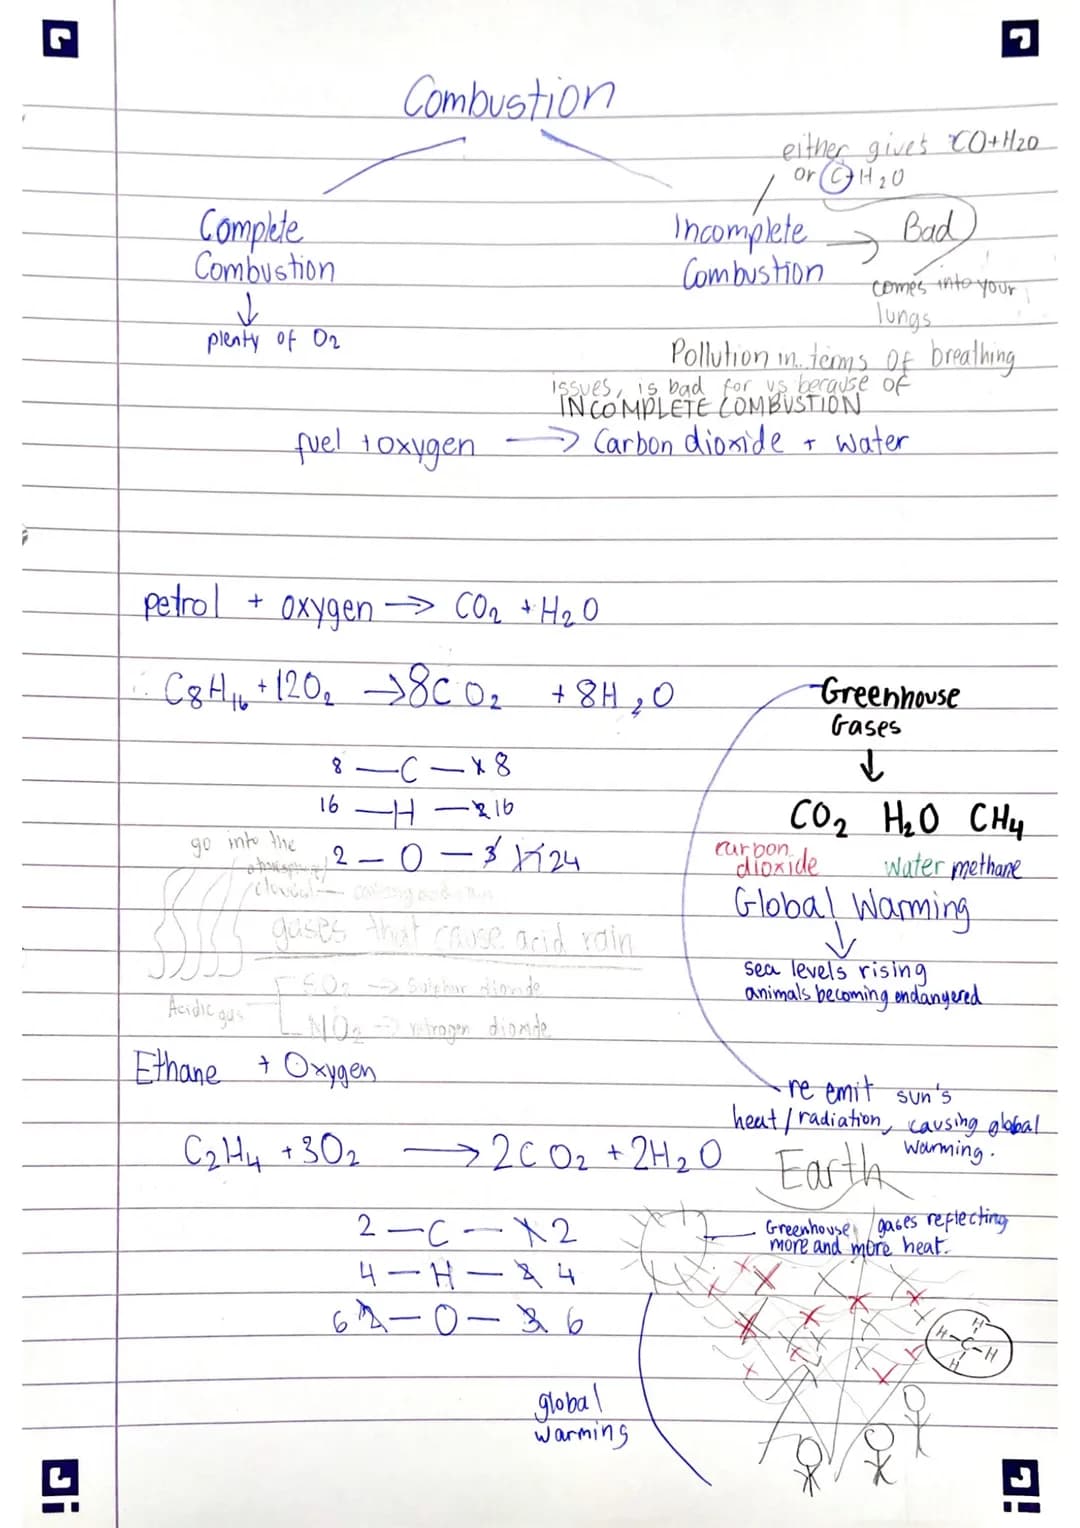 Combustion
either gives CO+H2O
or C+H2O
Complete
Combustion
Incomplete
Combustion
→ Bad
comes into your
lungs
↓
plenty of O2
Pollution in terms of breathing
issues, is bad for us because of
INCOMPLETE COMBUSTION
fuel + oxygen → Carbon dioxide + water
petrol + oxygen → CO2 + H2O
∴ C8H16 + 12O2 → 8CO2 + 8H2O
8 — C — 8
16 — H — 16
2 — O — 24
go into the
gases that cause acid rain
Acidic gas
SO2 → Sulphur dioxide
NO2 → nitrogen dioxide
Greenhouse
Gases
↓
CO2 H2O CH4
carbon
dioxide
water methane
Global Warming
↓
sea levels rising
animals becoming endangered
re emit sun's
heat / radiation, causing global
warming.
Ethane + Oxygen
C2H4 + 3O2 → 2CO2 + 2H2O
2 — C — 2
4 — H — 4
6 — O — 6
Earth
Greenhouse gases reflecting
more and more heat.
H
H-C-H
H
global
warming